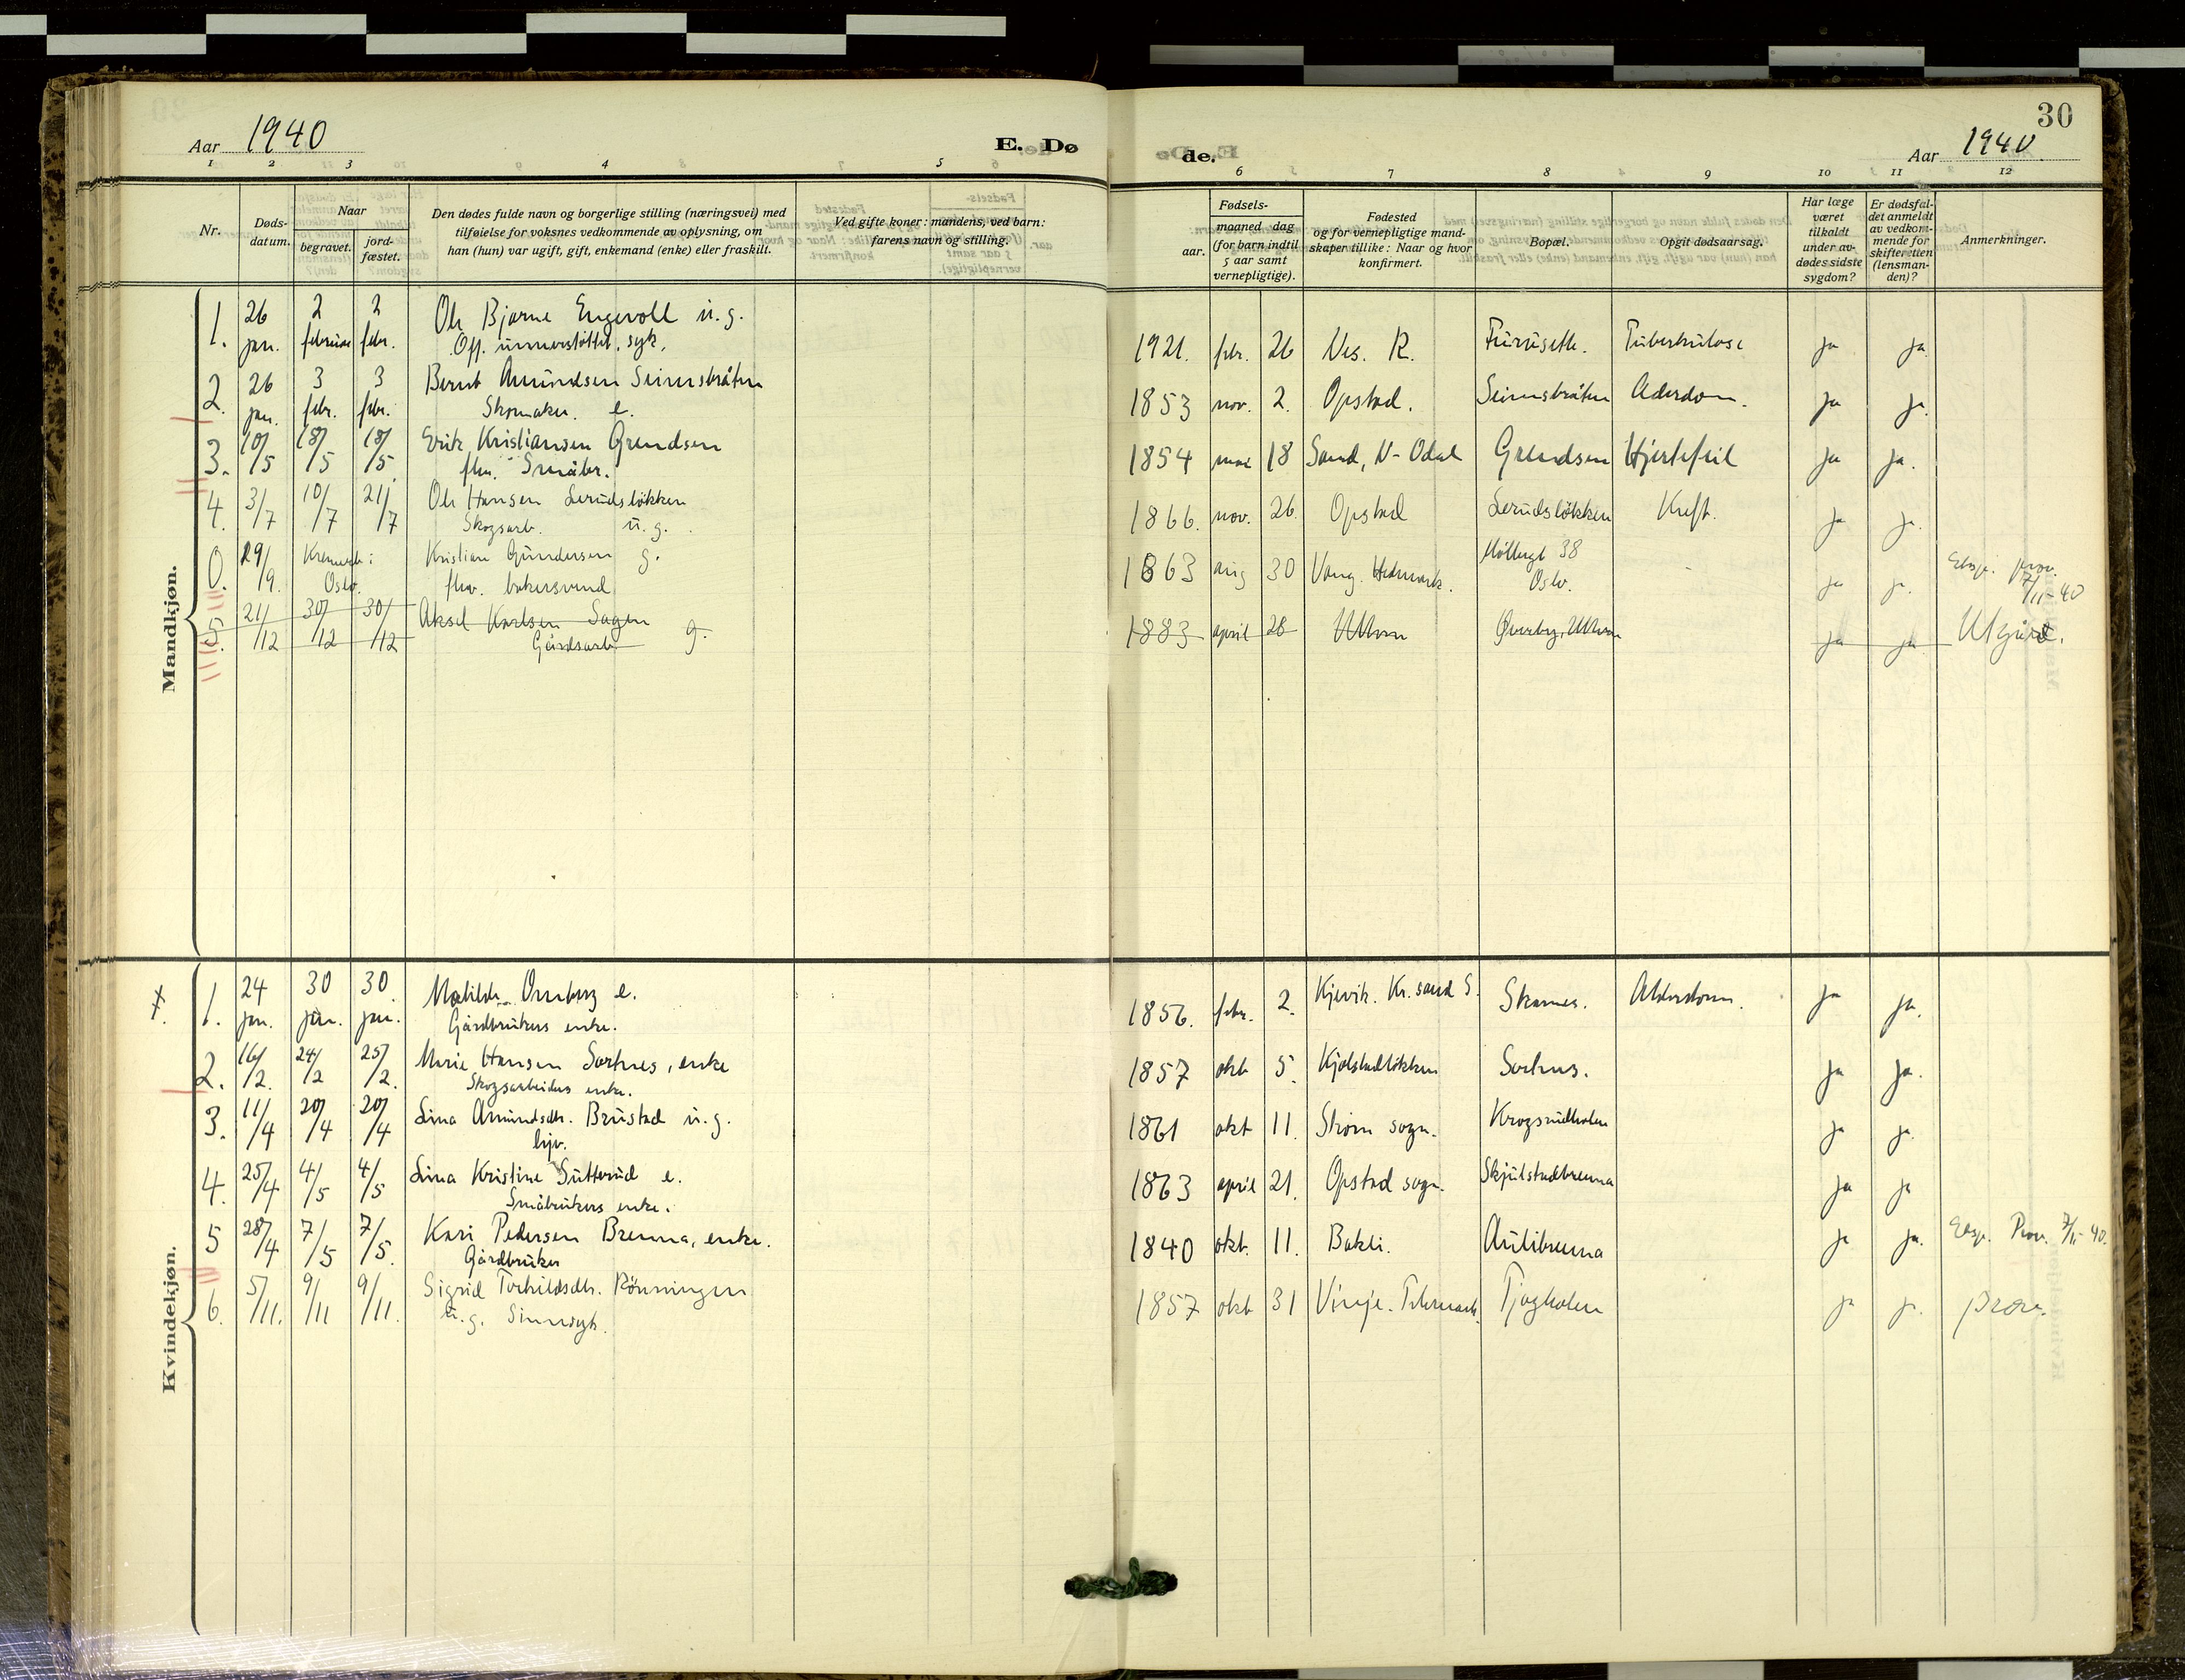 Aar 1940
E. Dø
de.
Aar 1940
30
1 2 3 4 5
6 7 8 9 10 11 12
Nr.
Døds-
datum.
Naar
begravet.
jord-
fæstet.
Den dødes fulde navn og borgerlige stilling (næringsvei) med
tilføielse for voksnes vedkommende av oplysning, om
han (hun) var ugift, gift, enkemand (enke) eller fraskilt.
Ved gifte koner: mandens, ved barn:
farens navn og stilling.
Fødsels-
aar.
maaned dag
(for barn indtil
5 aar samt
vernepligtige).
Fødested
og for vernepligtige mand-
skaper tillike: Naar og hvor
konfirmert.
Bopæl.
Opgit dødsaarsag.
Har læge
været
tilkaldt
under av-
dødes sidste
sygdom?
Er dødsfal-
det anmeldt
av vedkom-
mende for
skifteretten
(lensman-
den)?
Anmerkninger.
Mandkjøn.
1. 26 jan. 2 februar 2 febr. Ole Bjarne Engevoll u.g.
Off. understöttet, syk.
1921. febr. 26 Nes. R. Furuseth. Tuberkulose ja ja
2. 26 jan. 3 febr. 3 febr. Bernt Amundsen Seimsbråten
Skomaker. e.
1853 nov. 2. Opstad. Seimsbråten Alderdom. ja ja.
3. 10/5 18/5 18/5 Erik Kristiansen Grendsen
fhv. Småbr.
1854 mai 18 Sand, N-Odal Grendsen Hjertefeil ja ja.
4. 3/7 10/7 21/7 Ole Hansen Lerudslökken
Skogsarb. u.g.
1866. nov. 26. Opstad Lerudslökken Kreft. ja ja.
0. 29/9. Kremert i Oslo. Kristian Gundersen g.
fhv. bakersvend
1863 aug 30 Vang. Hedmark. Möllergt 38
Oslo. ja ja. Ekspr. prov.
7/11-40
5. 21/12 30/12 30/12 Aksel Karlsen Sagen
Gårdsarb. g.
1883 april 28 Ullern Överby, Ullern ja ja Utgård.
Kvindekjøn.
1. 24 jan. 30 jan. 30 jan. Matilde Ornberg e.
Gårdbrukers enke.
1856. febr. 2. Kjevik. Kr.sand S. Skarnes. Alderdom. ja ja.
2. 16/2. 24/2 25/2. Marie Hansen Sortnes, enke
Skogsarbeiders enke.
1857 okt 5. Kjølstadlökken Sortnes. ja ja.
3. 11/4 20/4 20/4 Lina Amundsdtr. Brustad u.g.
hjv.
1861 okt 11. Ström sogn. Krogsrudholen ja ja.
4. 25/4 4/5 4/5 Lina Kristine Sutterud e.
Småbrukers enke.
1863 april 21. Opstad sogn. Skjulstadbrenna ja ja
5 28/4 7/5 7/5. Kari Pedersen Brenna, enke.
Gårdbruker
1840 okt. 11. Bakli. Aulibrenna ja ja. Eksp. Prov. 7/11-40.
6. 5/11. 9/11 9/11. Sigrid Torkildsdtr. Rönningen
u.g. Sinnsyk.
1857 okt 31 Vinje. Telemark. Tjogholen ja ja. prov.